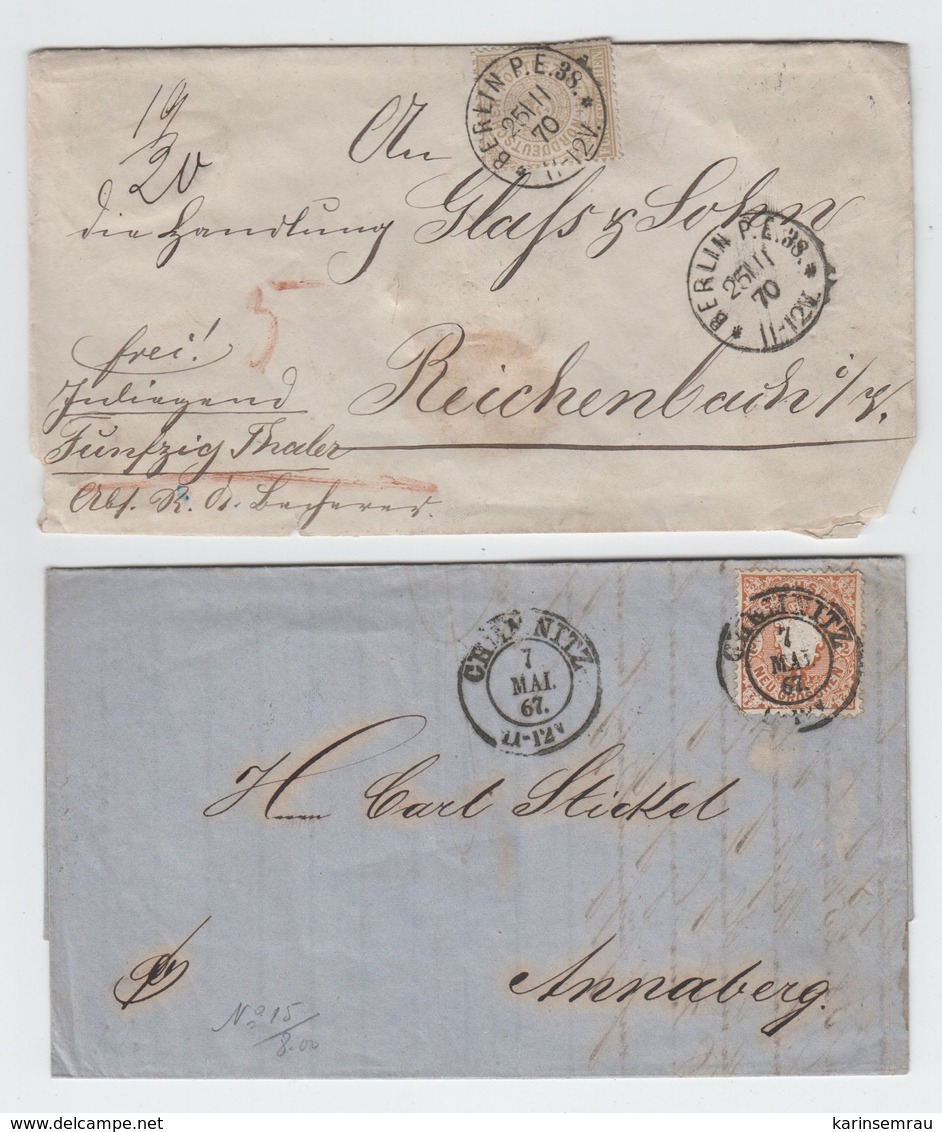 19
20
An
die Handlung Glaß & Sohn
frei!
5
Reichenbach i/V.
Inliegend
Funfzig Thaler
Abs. R.
BERLIN P.E.38.
25 11
70
11-12V.
NORDDEUTSCH
BERLIN P.E.38.
25 11
70
11-12V.
CHEMNITZ
7
MAI.
67.
11-12V
CHEMNITZ
7
MAI.
67.
11-12V
NEU GROSCHEN
Herrn Carl Stickel
Annaberg.
No 15
8.00
karinsemrau